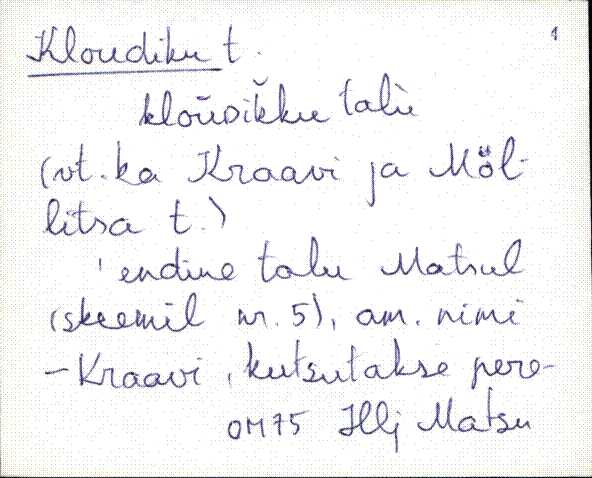 1
Kloudiku t.
kloūDik̆ku talu
(vt. ka Kraavi ja Möl-
litsa t.)
'endine talu Matsul
(skeemil nr. 5), am. nimi
- Kraavi, kutsutakse pere-
OM75 Hlj Matsu